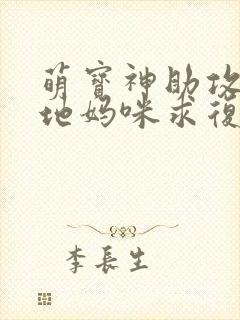 萌寳神助攻
地媽咪求復
李長生